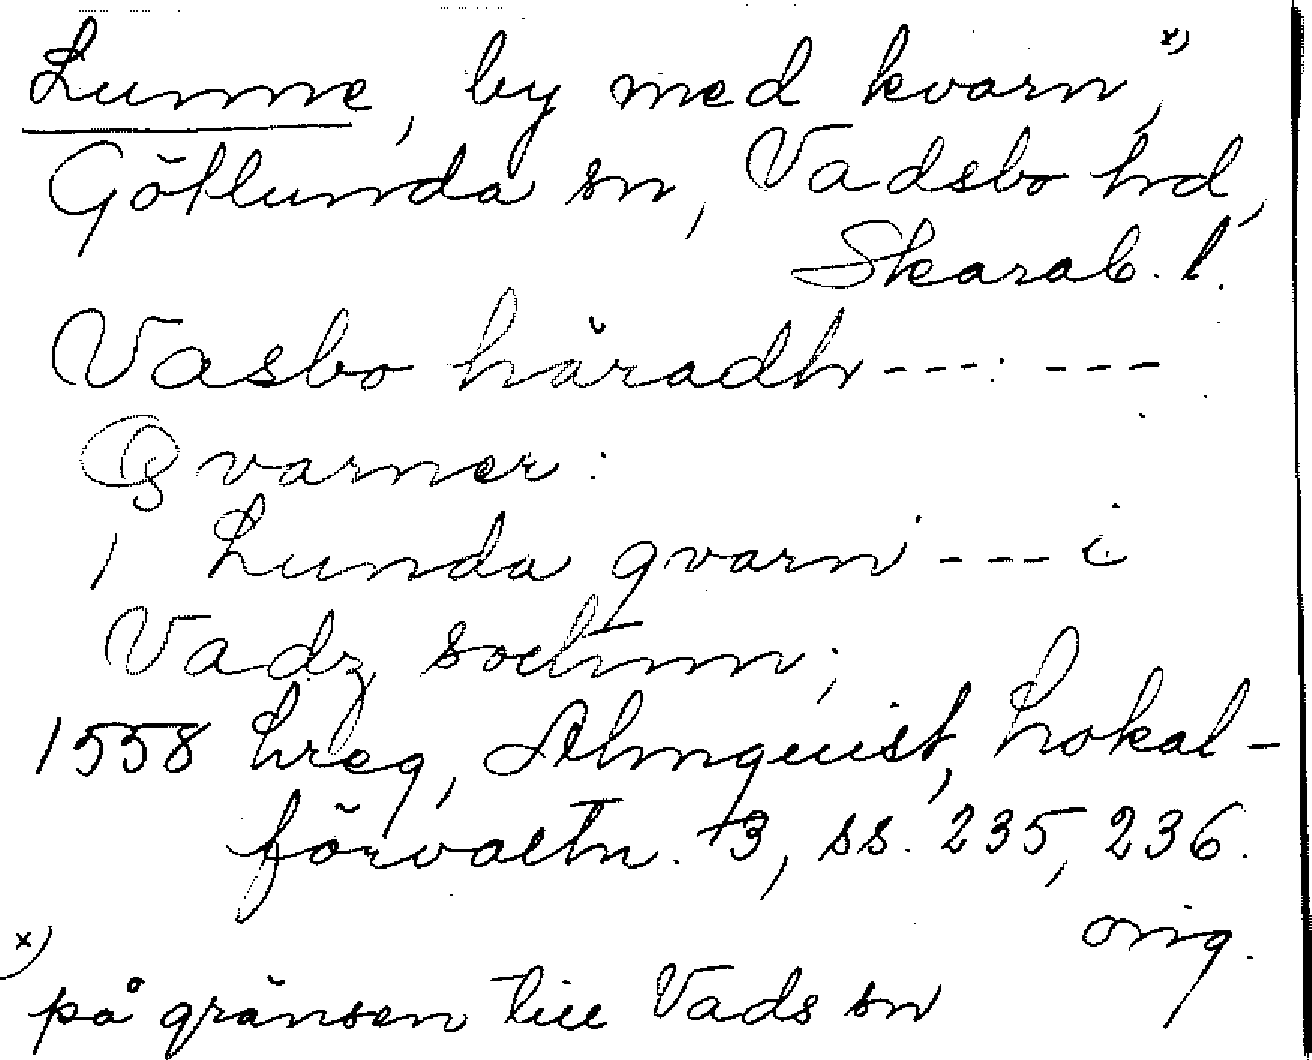 Lunne, by med kvarn,ˣ⁾
Götlunda sn, Vadsbo hd,
Skarab. l.
Vasbo häradh --- : ---
Qvarner:
1 Lunda qvarn --- i
Vadz sochnn;
1558 hreg, Almquist, Lokal-
förvaltn. +3, ss. 235, 236.
orig.
x)
på gränsen till Vads sn